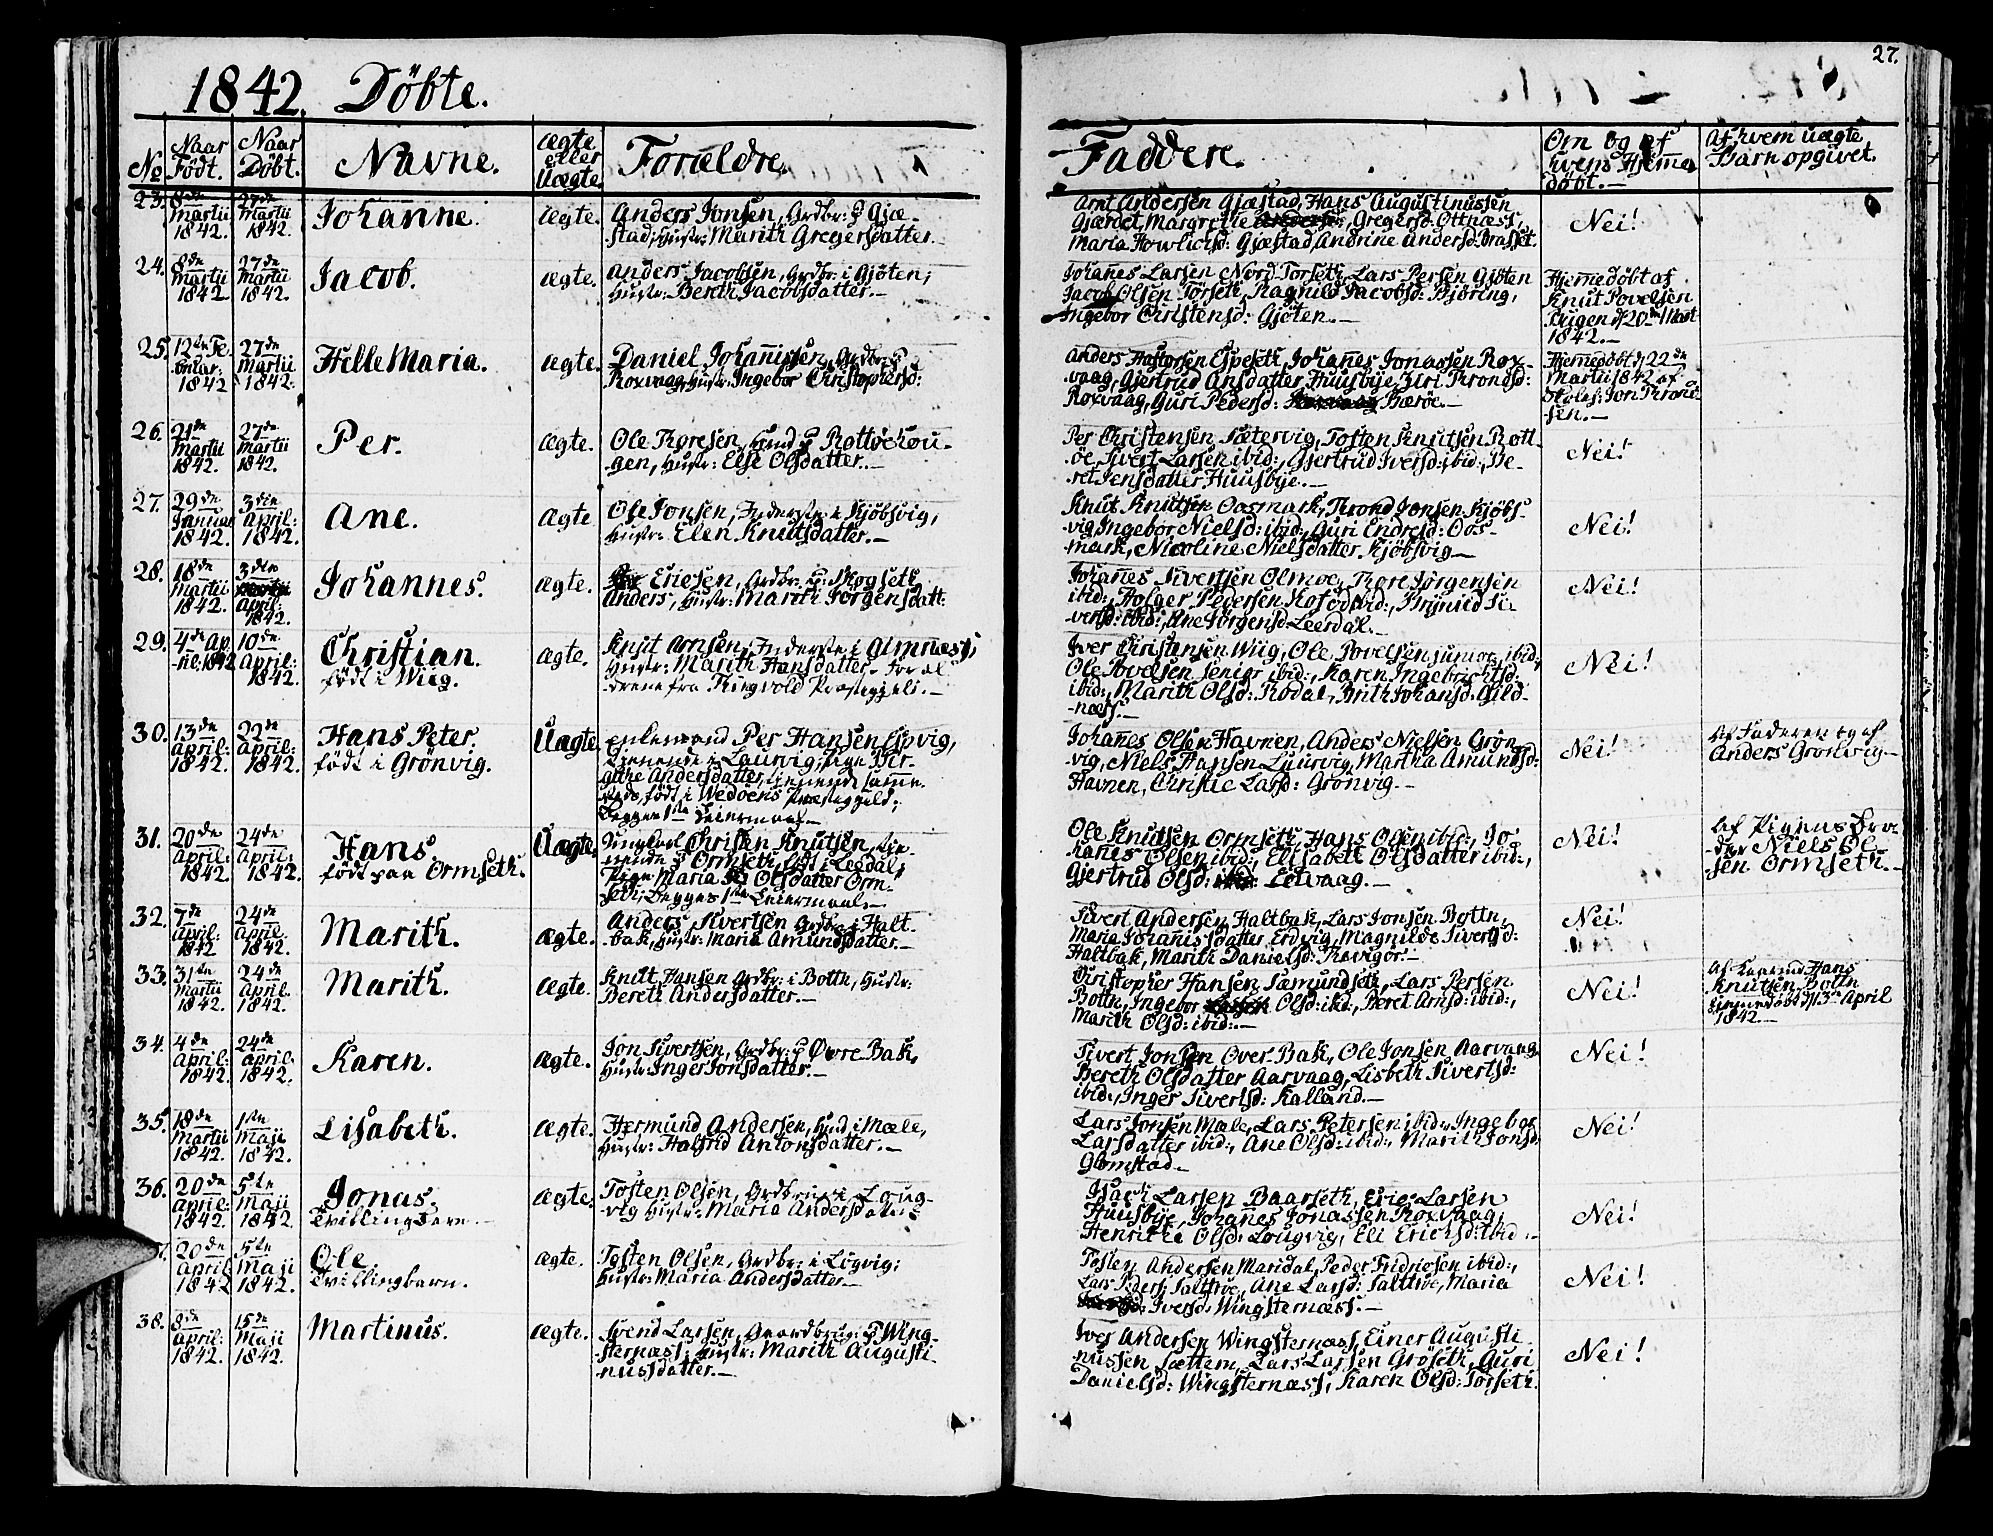 27.
1842. Döbte.
No
Naar Födt.
Naar Döbt.
Navne.
ægte eller Uægte.
Forældre.
Faddere.
Om og af hvem Hjemmedöbt.
Af hvem uægte Barn opgivet.
23. 8de Martii 1842.
27de Martii 1842.
Johanne.
ægte.
Anders Jonsen, Grdbr: p Gjæ-
stad, Hustr: Marith Gregersdatter.
Arnt Arldersen Gjæstad, Hans Augustinussen
Gjærdet, Margrethe Gregersd: Ottnæss,
Maria Gjæstad, Andrine Andersd: Brasset.
Nei!
24. 8de Martii 1842
27de Martii 1842.
Jacob.
ægte.
Anders Jacobsen, Grdbr. i Gjöten;
Hustr: Bereth Jacobsdatter.
Johannes Larsen Nord-Torseth, Lars Persen Gjöten
Jacob Olsen Torseth, Ragnild Jacobsd: Björing,
Ingebor Christensd: Gjöten.
Hjemmedöbt af
Knut Povelsen
d 20de Mart
1842.
25. 12te Februar: 1842
27de Martii 1842.
Hille Maria.
ægte.
Daniel Johannissen, Grdbr: p
Roxvaag, Hustr: Ingebor Christophersd:
Anders Espeseth, Johannes Jonassen Rox-
vaag, Gjertrud Ansdatter Huusbye, Siri Thronds:
Roxvaag, Guri Pedersd: Bæröe.
Hjemedöbt d 22de
Martii 1842 af
Skoles: Jon Thrond-
sen.
26. 21de Martii 1842.
27de Martii 1842.
Per.
ægte.
Ole Thoresen, Huusmd p Rottöehou-
gen, Hustr: Else Olsdatter.
Per Christensen Sætervig, Tosten Knutsen Rott-
öe, Sivert Larsen ibid:, Gjertrud Iversd: ibid:, Be-
ret Jensdatter Huusbye.
Nei!
27. 29de Januar 1842.
3die April: 1842.
Ane.
ægte.
Ole Jonsen, Inderste i Kjöbsvig,
Hustr: Elen Knutsdatter.
Knut Knutsen Oosmark, Thrond Jonsen Kjöbs-
vig, Ingebor Nielsd: ibid, Guri Endresd: Oos-
mark, Nicoline Nielsdatter Kjöbsvig
Nei!
28. 18de Martii 1842.
3die April: 1842.
Johannes.
ægte.
Ericsen, Grdbr. p. Skogseth
Anders, Hustr: Marith Jörgensdatt:
Johannes Sivertsen Olmoe, Thore Jörgensen
ibid:, Holger Pedersen ibid:, Brynild Si-
versd: ibid:, Ane Jörgensd Leerdal.
Nei!
29. 4de April. 1842
10de April: 1842.
Christian.
födt i Wiig.
ægte.
Knut Arnsen, Inderste i Almnæss;
Hustr: Marith Hansdatter. Foræl-
drene fra Tingvold Præstegjeld.
Iver Christensen Wiig, Ole Povelsen junior ibid,
Ole Povelsen Senior ibid:, Karen Ingebrichtsd:
ibid:, Marith Olsd: Rodal, Brith Johansd: Gild-
næss.
Nei!
30. 13de April: 1842.
22de April: 1842.
Hans Peter.
födt i Grönvig.
Uægte.
Enkemand Per Hansen Espvig,
tienende i Laurvig; Pige Bir-
githe Andersdatter, tienende samme-
steds, födt i Wedöens Præstegjeld;
Begges 1ste Leiermaal.
Johannes Olsen Havnen, Anders Nielsen Grön-
vig, Niels Hansen Luurvig, Martha Amundsd:
Havnen, Christie Larsd: Grönvig.
Nei!
Af Faderen og af
Anders Grönvig
31. 20de April: 1842
24de April: 1842.
Hans.
födt paa Ormseth.
Uægte.
Ungkarl Christen Knutsen, tie-
nende p Ormseth, födt i Leedal;
Pige Maria Olsdatter Orm-
seth; Begges 1ste Leiermaal.
Ole Knutsen Ormseth, Hans Olsen ibid:, Jo-
hanes Olsen ibid:, Elisabeth Olsdatter ibid:,
Gjertrud Olsd: Letvaag.
Nei!
Af Pigens Bro-
der Niels Ol-
sen Ormseth.
32. 7de April: 1842
24de April 1842.
Marith.
ægte.
Anders Sivertsen Grdbr. i Halt-
bak, Hustr: Maria Amundsdatter.
Sivert Andersen Haltbak, Lars Jonsen Bottn,
Maria Johanisdatter Erdvig, Magnilde Sivertsd:
Haltbak, Marith Danielsd: Røvigor.
Nei!
33. 31te Martii 1842.
24de April. 1842.
Marith.
ægte.
Knut Hansen Grdbr: i Bottn, Hustr:
Bereth Andersdatter.
Christopher Hansen Sæmundseth, Lars Persen
Bottn, Ingebor Olsd: ibd:, Beret Arnsd: ibid:,
Marith Olsd: ibid:.
Nei!
Af Hans
Knutsen Bottn
Hjemmedöbt d 13de April
1842.
34. 4de April: 1842.
24de April: 1842.
Karen.
ægte.
Jon Sivertsen, Grdbr: p Øvre Bak,
Hustr: Inger Jonsdatter.
Sivert Jonsen Over-Bak, Ole Jonsen Aarvaag,
Bereth Olsdatter Aarvaag, Lisbeth Sivertsd:
ibid:, Inger Sivertsd: Kalland.
Nei!
35. 18de Martii 1842.
1ste Maji 1842.
Lisabeth.
ægte.
Hermund Andersen, Hmd i Mæle,
Hustr: Halfrid Antonsdatter.
Lars Jonsen Mæle, Lars Petersen ibid:, Ingebor
Larsdatter ibid:, Ane Olsd: ibid:, Marith Jonsd:
Glomstad.
Nei!
36. 20de April: 1842.
5te Maji 1842
Jonas,
Tvillingbarn.
ægte.
Tosten Olsen, Grdbrug: i Loug-
vig Hustr: Maria Andersdatter
Isach Larsen Baarseth, Eric Larsen
Huusbye, Johanes Jonassen Roxvaag,
Henricha Olsd: Lougvig, Eli Erichsd: ibid:
Nei!
20de April 1842
5te Maji 1842.
Ole
Tvillingbarn.
ægte.
Tosten Olsen, Grdbr: i Lögvig;
Hustr: Maria Andersdatter
Tosten Andersen Maridal, Peder Fridricsen ibid:,
Lars Peders: Salthöe, Ane Larsd: Salttröe, Maria
Iversd: Wingsternæss.
Nei!
38. 8de April: 1842.
15de Maji 1842.
Martinus.
ægte.
Svend Larsen, Gaardbrug: p Wing-
sternæss; Hustr: Marith Augusti-
nussdatter.
Iver Andersen Wingsternæss, Einer Augusti-
nussen Sættem, Lars Larsen Gröseth, Guri
Danielsd: Wingsternæss, Karen Olsd: Torseth.
Nei!